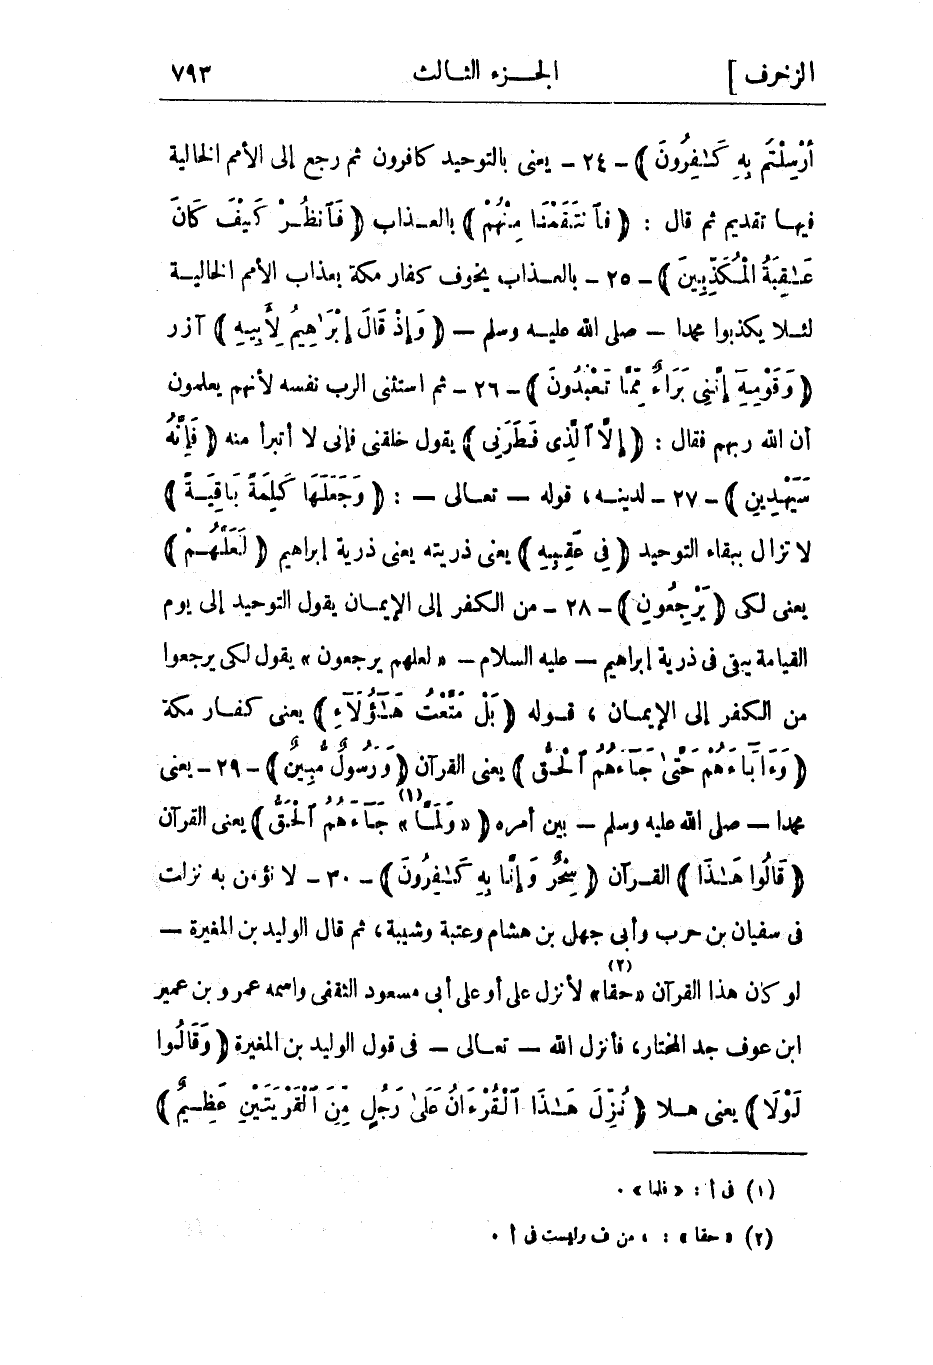 الزخرف ] الجـزء الثـالث ٧٩٣
أُرْسِلْتُم بِهِ كَـٰفِرُونَ ) - ٢٤ - يعنى بالتوحيد كافرون ثم رجع إلى الأمم الخالية
فيهـا تقديم ثم قال : ( فَٱنتَقَمْنَا مِنْهُمْ ) بالعـذاب ( فَٱنظُـرْ كَيْفَ كَانَ
عَـٰقِبَةُ الْمُكَذِّبِينَ ) - ٢٥ - بالعـذاب يخوف كفار مكة بعذاب الأمم الخاليـة
لئـلا يكذبوا محمدا — صلى الله عليـه وسلم — ( وَإِذْ قَالَ إِبْرَٰهِيمُ لِأَبِيهِ ) آزر
( وَقَوْمِهِ إِنَّنِى بَرَاءٌ مِّمَّا تَعْبُدُونَ ) - ٢٦ - ثم استثنى الرب نفسه لأنهم يعلمون
أن الله ربهم فقال : ( إِلَّا ٱلَّذِى فَطَرَنِى ) يقول خلقنى فإنى لا أتبرأ منه ( فَإِنَّهُ
سَيَهْدِينِ ) - ٢٧ - لدينـه، قوله — تعـالى — : ( وَجَعَلَهَا كَلِمَةً بَاقِيَـةً )
لا تزال ببقاء التوحيد ( فِى عَقِبِهِ ) يعنى ذريته يعنى ذرية إبراهيم ( لَعَلَّهُـمْ )
يعنى لكى ( يَرْجِعُونَ ) - ٢٨ - من الكفر إلى الإيمـان يقول التوحيد إلى يوم
القيامة يبقى فى ذرية إبراهيم — عليه السلام — « لعلهم يرجعون » يقول لكى يرجعوا
من الكفر إلى الإيمـان ، قـوله ( بَلْ مَتَّعْتُ هَـٰٓؤُلَآءِ ) يعنى كفـار مكة
( وَءَابَآءَهُمْ حَتَّىٰ جَآءَهُمُ ٱلْحَقُّ ) يعنى القرآن ( وَرَسُولٌ مُّبِينٌ ) - ٢٩ - يعنى
محمدا — صلى الله عليه وسلم — بين أمره ( « وَلَمَّـا » (١) جَآءَهُمُ ٱلْحَقُّ ) يعنى القرآن
( قَالُوا هَـٰذَا ) القـرآن ( سِحْرٌ وَإِنَّا بِهِ كَـٰفِرُونَ ) - ٣٠ - لا نؤمن به نزلت
فى سفيان بن حرب وأبى جهل بن هشام وعتبة وشيبة، ثم قال الوليد بن المغيرة —
لو كان هذا القرآن «حقا» (٢) لأنزل على أو على أبى مسعود الثقفى واسمه عمرو بن عمير
ابن عوف جد المختار، فأنزل الله — تعـالى — فى قول الوليد بن المغيرة ( وَقَالُوا
لَوْلَا ) يعنى هـلا ( نُزِّلَ هَـٰذَا ٱلْقُرْءَانُ عَلَىٰ رَجُلٍ مِّنَ ٱلْقَرْيَتَيْنِ عَظِـيمٌ )
(١) فى أ : « فلما » .
(٢) « حقا » : ، من ف وليست فى أ .